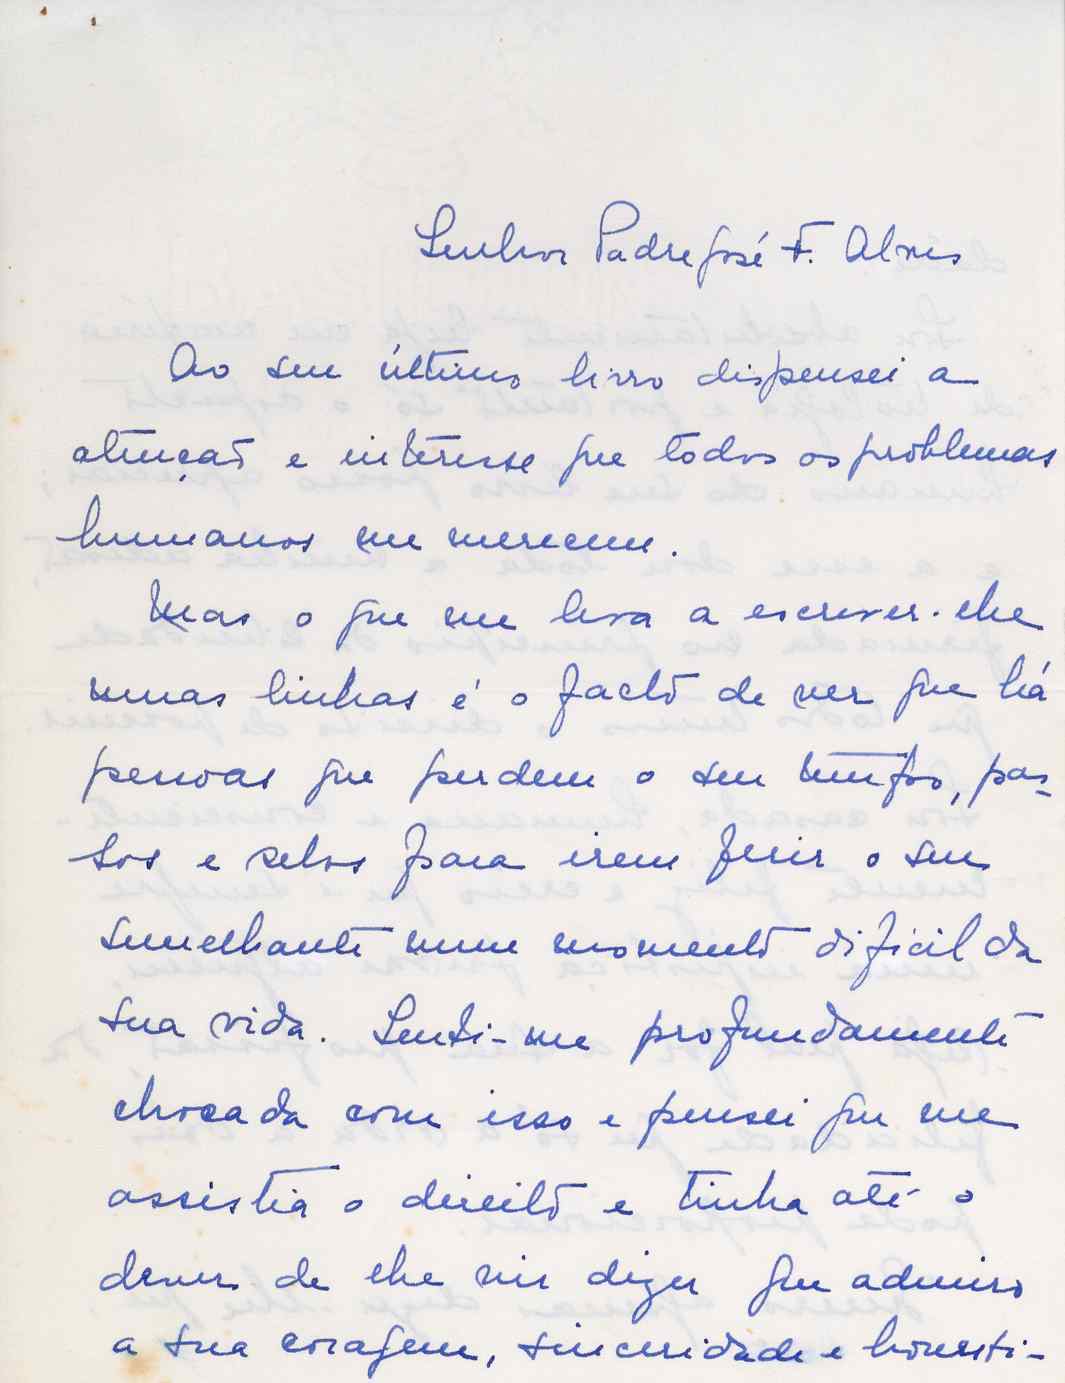 Senhor Padre José F. Alves
Ao seu último livro dispensei a
atenção e interesse que todos os problemas
humanos me merecem.
Mas o que me leva a escrever-lhe
umas linhas é o facto de ver que há
pessoas que perdem o seu tempo, pas-
sos e selos para irem ferir o seu
semelhante num momento difícil da
sua vida. Senti-me profundamente
chocada com isso e pensei que me
assistia o direito e tinha até o
dever de lhe vir dizer que admiro
a sua coragem, sinceridade e honesti-